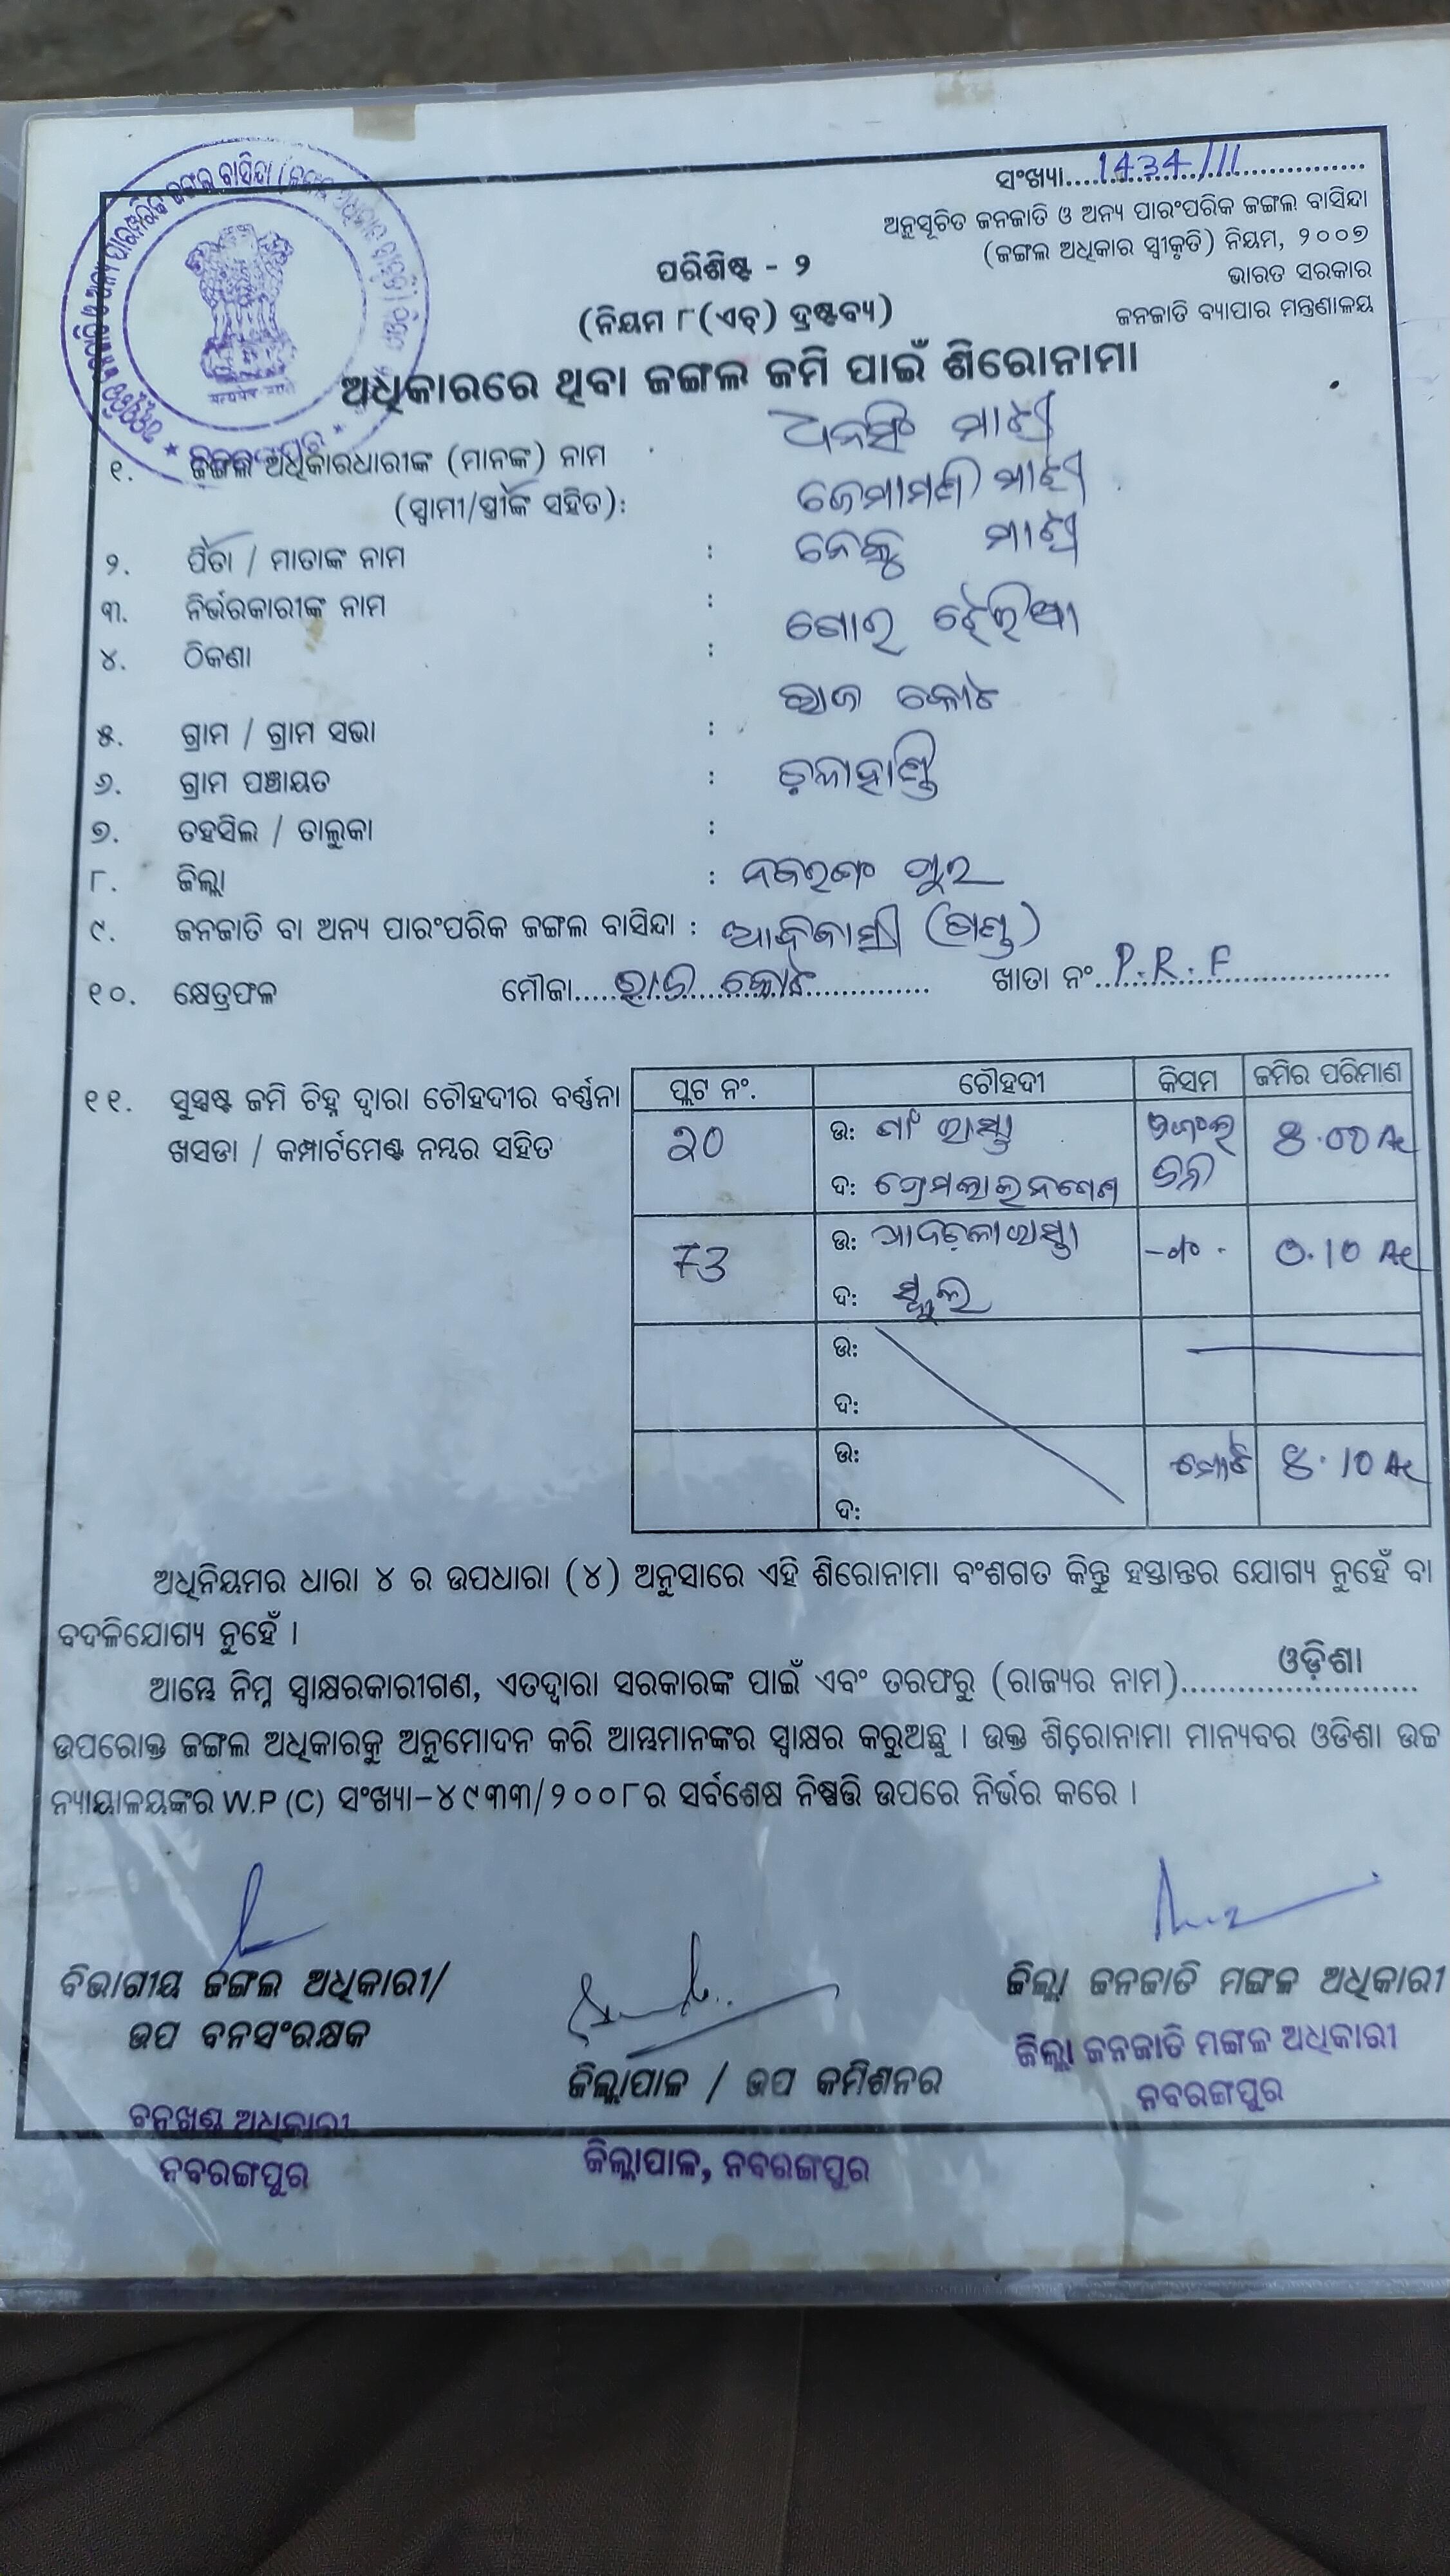 ସଂଖ୍ୟା....1434/11....
ଅନୁସୂଚିତ ଜନଜାତି ଓ ଅନ୍ୟ ପାରଂପରିକ ଜଙ୍ଗଲ ବାସିନ୍ଦା
(ଜଙ୍ଗଲ ଅଧିକାର ସ୍ୱୀକୃତି) ନିୟମ, ୨୦୦୭
ଭାରତ ସରକାର
ଜନଜାତି ବ୍ୟାପାର ମନ୍ତ୍ରଣାଳୟ
ପରିଶିଷ୍ଟ - ୨
(ନିୟମ ୮(ଏଚ୍) ଦ୍ରଷ୍ଟବ୍ୟ)
ଅଧିକାରରେ ଥିବା ଜଙ୍ଗଲ ଜମି ପାଇଁ ଶିରୋନାମା
୧. ଜଙ୍ଗଲ ଅଧିକାରଧାରୀଙ୍କ (ମାନଙ୍କ) ନାମ ଧନସିଂ ମାଝୀ
(ସ୍ୱାମୀ/ସ୍ତ୍ରୀଙ୍କ ସହିତ): ଜେମାମଣି ମାଝୀ
୨. ପିତା / ମାତାଙ୍କ ନାମ : ମାଝୀ
୩. ନିର୍ଭରକାରୀଙ୍କ ନାମ :
୪. ଠିକଣା :
୫. ଗ୍ରାମ / ଗ୍ରାମ ସଭା : ରାଜ କୋଟ
୬. ଗ୍ରାମ ପଞ୍ଚାୟତ : ଚଳାହାଣ୍ଡି
୭. ତହସିଲ / ତାଲୁକା :
୮. ଜିଲ୍ଲା : ନବରଙ୍ଗ ପୁର
୯. ଜନଜାତି ବା ଅନ୍ୟ ପାରଂପରିକ ଜଙ୍ଗଲ ବାସିନ୍ଦା : ଆଦିବାସୀ (ଗଣ୍ଡ)
୧୦. କ୍ଷେତ୍ରଫଳ ମୌଜା....ରାଜ କୋଟ.... ଖାତା ନଂ..P.R.F....
୧୧. ସୁସ୍ପଷ୍ଟ ଜମି ଚିହ୍ନ ଦ୍ୱାରା ଚୌହଦୀର ବର୍ଣ୍ଣନା
ଖସଡା / କମ୍ପାର୍ଟମେଣ୍ଟ ନମ୍ବର ସହିତ
ପ୍ଲଟ ନଂ. ଚୌହଦୀ କିସମ ଜମିର ପରିମାଣ
20 ଉ: ଗାଁ ରାସ୍ତା ଜଙ୍ଗଲ 8.00 Ac
ଦ: ଜମି
73 ଉ: ରାସ୍ତା 0.10 Ac
ଦ: ସ୍କୁଲ
ଉ:
ଦ:
ଉ: ମୋଟ 8.10 Ac
ଦ:
ଅଧିନିୟମର ଧାରା ୪ ର ଉପଧାରା (୪) ଅନୁସାରେ ଏହି ଶିରୋନାମା ବଂଶଗତ କିନ୍ତୁ ହସ୍ତାନ୍ତର ଯୋଗ୍ୟ ନୁହେଁ ବା
ବଦଳିଯୋଗ୍ୟ ନୁହେଁ ।
ଆମ୍ଭେ ନିମ୍ନ ସ୍ୱାକ୍ଷରକାରୀଗଣ, ଏତଦ୍ୱାରା ସରକାରଙ୍କ ପାଇଁ ଏବଂ ତରଫରୁ (ରାଜ୍ୟର ନାମ)....ଓଡ଼ିଶା....
ଉପରୋକ୍ତ ଜଙ୍ଗଲ ଅଧିକାରକୁ ଅନୁମୋଦନ କରି ଆମ୍ଭମାନଙ୍କର ସ୍ୱାକ୍ଷର କରୁଅଛୁ । ଉକ୍ତ ଶିରୋନାମା ମାନ୍ୟବର ଓଡିଶା ଉଚ୍ଚ
ନ୍ୟାୟାଳୟଙ୍କର W.P (C) ସଂଖ୍ୟା-୪୯୩୩/୨୦୦୮ର ସର୍ବଶେଷ ନିଷ୍ପତ୍ତି ଉପରେ ନିର୍ଭର କରେ ।
ବିଭାଗୀୟ ଜଙ୍ଗଲ ଅଧିକାରୀ/
ଉପ ବନସଂରକ୍ଷକ
ବନଖଣ୍ଡ ଅଧିକାରୀ
ନବରଙ୍ଗପୁର
ଜିଲ୍ଲାପାଳ / ଉପ କମିଶନର
ଜିଲ୍ଲାପାଳ, ନବରଙ୍ଗପୁର
ଜିଲ୍ଲା ଜନଜାତି ମଙ୍ଗଳ ଅଧିକାରୀ
ଜିଲ୍ଲା ଜନଜାତି ମଙ୍ଗଳ ଅଧିକାରୀ
ନବରଙ୍ଗପୁର